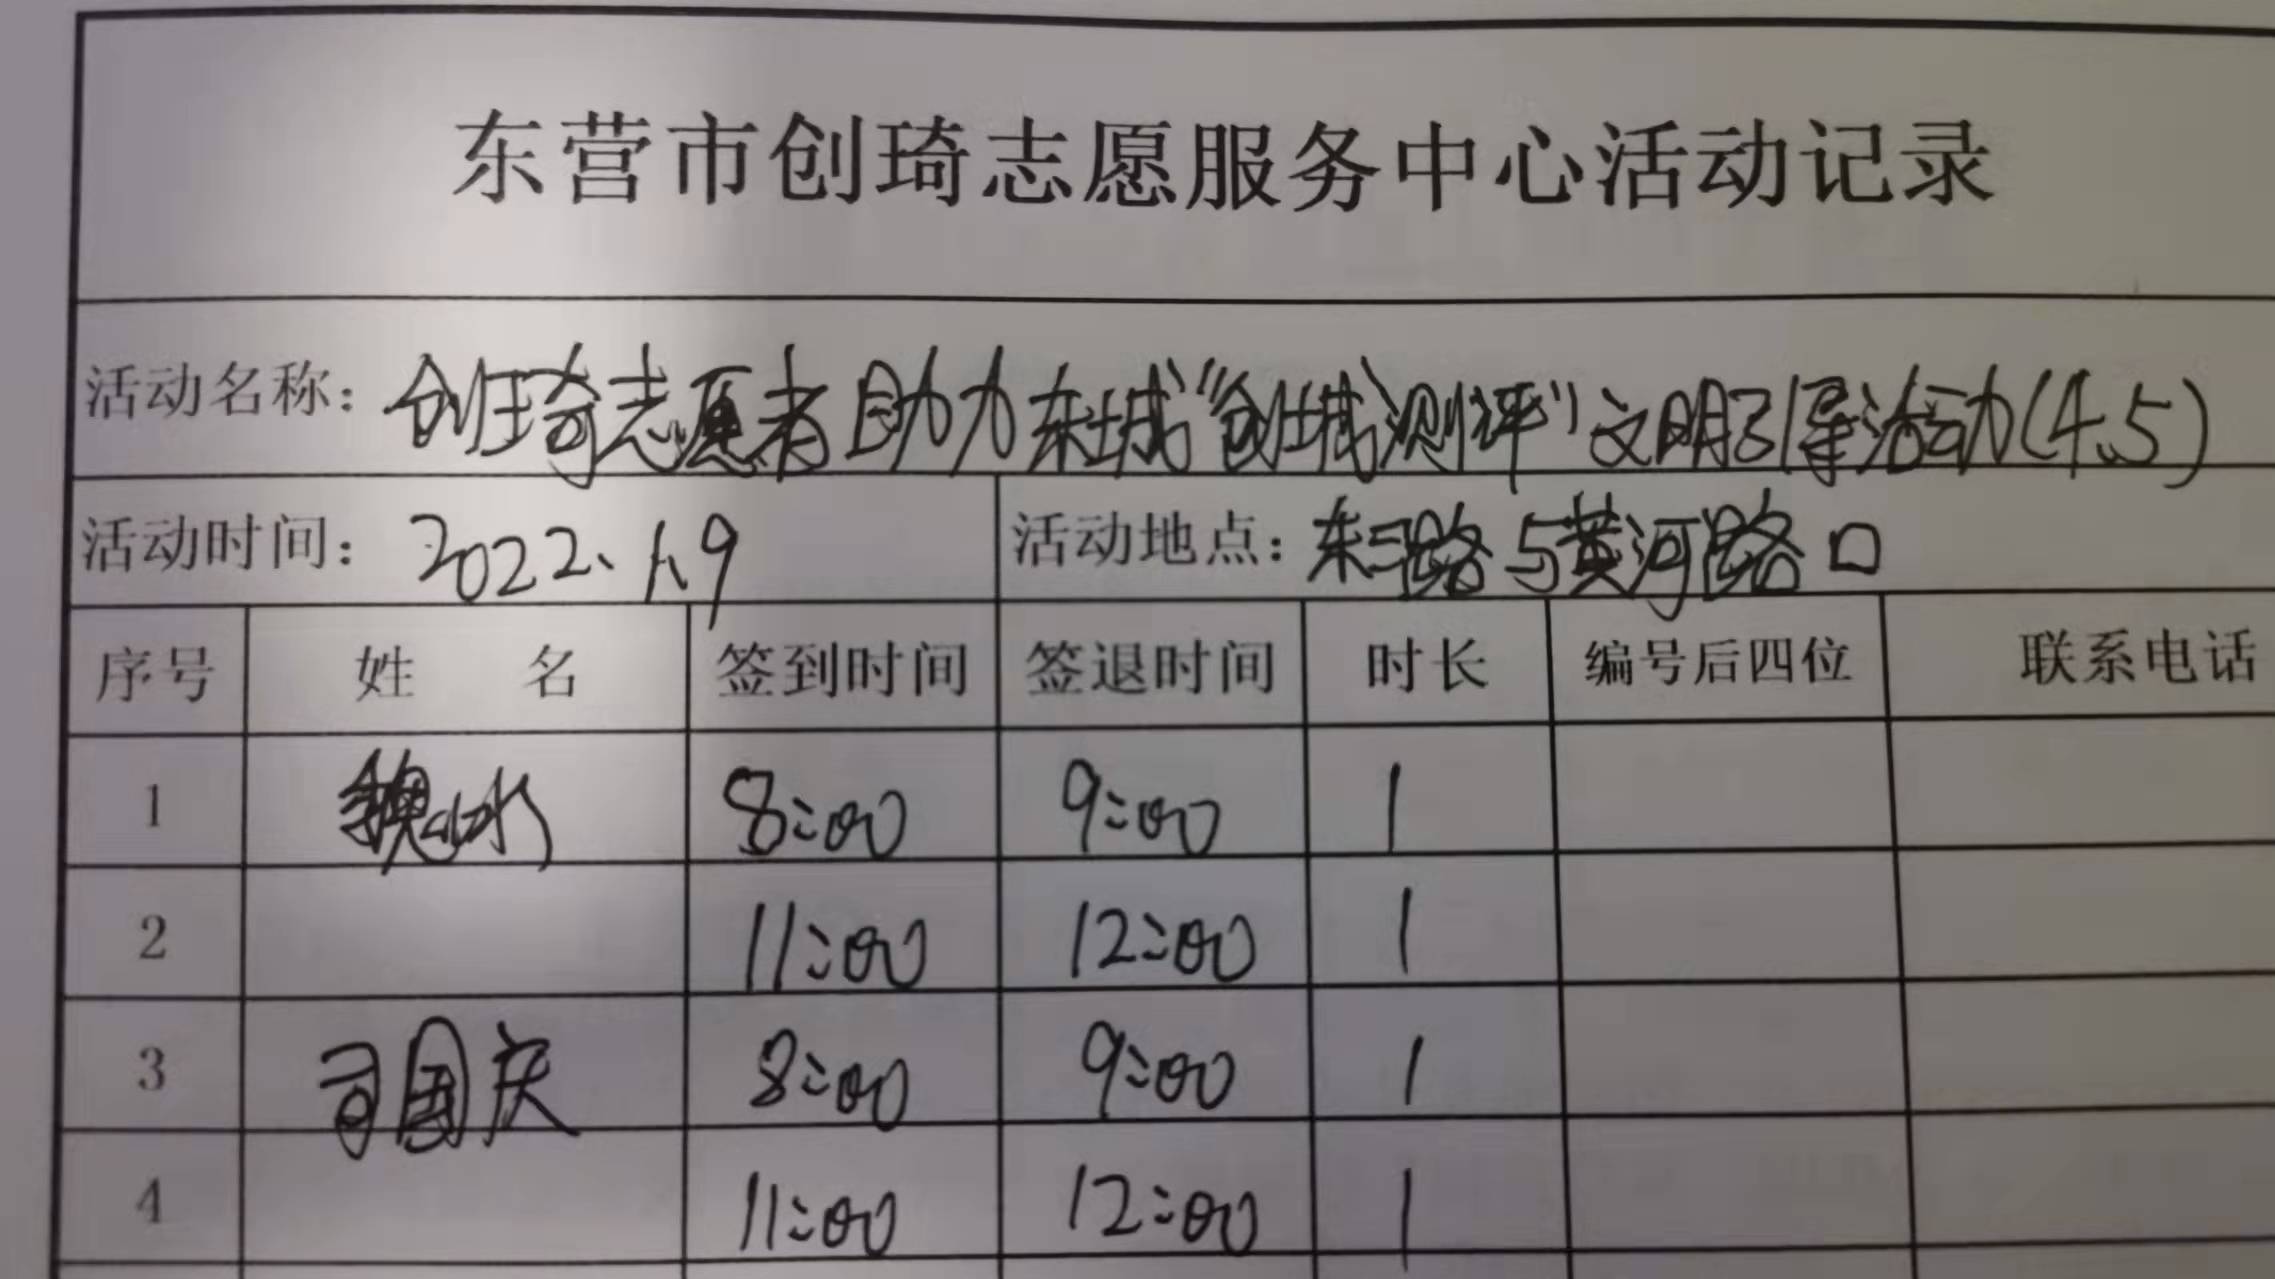 东营市创琦志愿服务中心活动记录
活动名称：创琦志愿者助力东城“创城测评”文明引导活动(4.5)
活动时间：2022.1.9 活动地点：东三路与黄河路口
序号 姓 名 签到时间 签退时间 时长 编号后四位 联系电话
1 8:00 9:00 1
2 11:00 12:00 1
3 司国庆 8:00 9:00 1
4 11:00 12:00 1